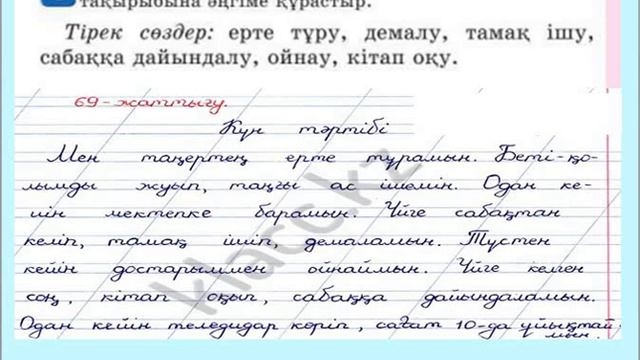 тақырыбына әңгіме құрастыр.
Тірек сөздер: ерте тұру, демалу, тамақ ішу,
сабаққа дайындалу, ойнау, кітап оқу.
69-жаттығу.
Күн тәртібі
Мен таңертең ерте тұрамын. Беті-қо-
лымды жуып, таңғы ас ішемін. Одан ке-
йін мектепке барамын. Үйге сабақтан
келіп, тамақ ішіп, демаламын. Түстен
кейін достарыммен ойнаймын. Үйге келген
соң, кітап оқып, сабаққа дайындаламын.
Одан кейін теледидар көріп, сағат 10-да ұйықтай-
мын.
klacc.kz